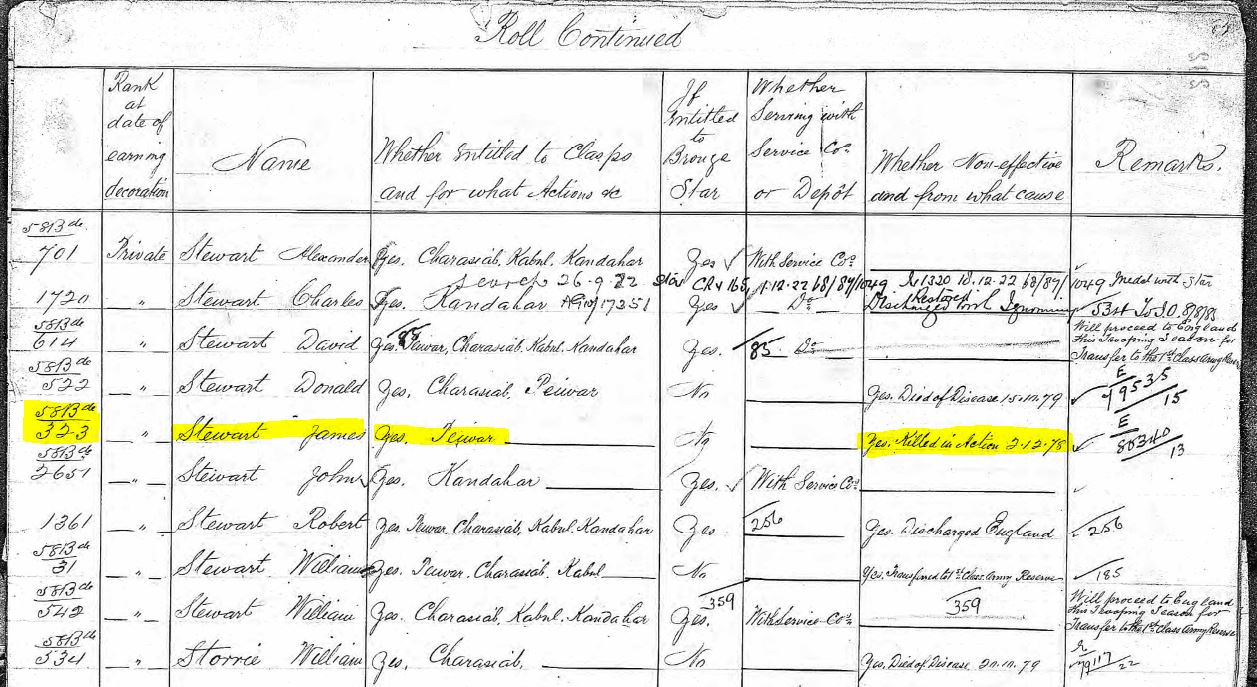 Roll Continued
Rank at date of earning decoration
Name
Whether Entitled to Clasps and for what Actions &c
If Entitled to Bronze Star
Whether Serving with Service Cos. or Depôt
Whether Non-effective and from what cause
Remarks.
58th Bde
701 Private Stewart Alexander Yes. Charasiab, Kabul, Kandahar Yes With Service Cos.
26.9.22 1.12.22 68/89/1049 18.12.22 68/89/1049 Medal with Star
1720 " Stewart Charles Yes. Kandahar Yes Do Discharged with Ignominy 8/8/83
58/3de
614 " Stewart David Yes. Peiwar, Charasiab, Kabul, Kandahar Yes. 85 Do Will proceed to England this Trooping Season for Transfer to the 1st Class Army Reserve
58/3de
522 " Stewart Donald Yes, Charasiab, Peiwar No Yes. Died of Disease 15.11.79 E 79535/15
58/3de
323 " Stewart James Yes. Peiwar No Yes. Killed in Action 2.12.78 E 80340/13
58/3de
2651 " Stewart John Yes. Kandahar Yes. With Service Cos.
1361 " Stewart Robert Yes. Peiwar, Charasiab, Kabul, Kandahar Yes 256 Yes. Discharged England 256
58/3de
31 " Stewart William Yes. Peiwar, Charasiab, Kabul No Yes. Transferred to 1st Class Army Reserve 185
58/3de
542 " Stewart William Yes. Charasiab, Kabul, Kandahar 359 Yes. With Service Cos. 359 Will proceed to England this Trooping Season for Transfer to the 1st Class Army Reserve
58/3de
534 " Storrie William Yes, Charasiab, No Yes. Died of Disease